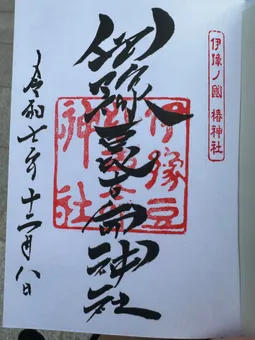 伊豫ノ國 椿神社
伊豫豆比古命神社
伊豫豆
神社
令和七年十二月八日